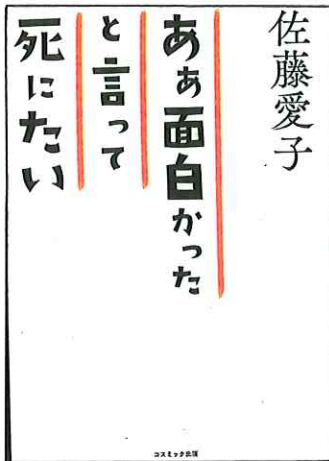 佐藤愛子
あぁ面白かった
と言って
死にたい
コスミック出版